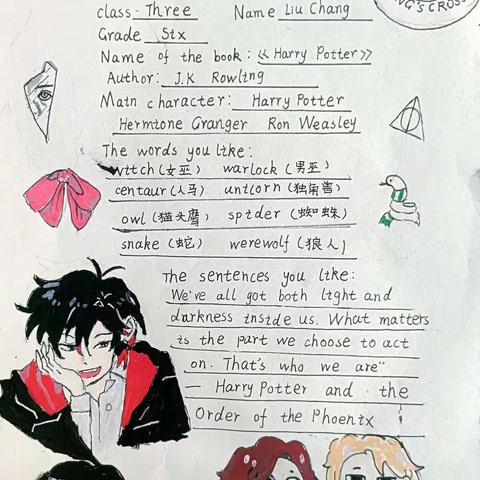 class - Three Name Liu Chang
NG'S CROSS
Grade Six
Name of the book: 《Harry Potter》
Author: J.K Rowling
Main character: Harry Potter
Hermione Granger Ron Weasley
The words you like:
witch (女巫) warlock (男巫)
centaur (人马) unicorn (独角兽)
owl (猫头鹰) spider (蜘蛛)
snake (蛇) werewolf (狼人)
The sentences you like:
We've all got both light and
darkness inside us. What matters
is the part we choose to act
on. That's who we are"
— Harry Potter and the
Order of the Phoenix